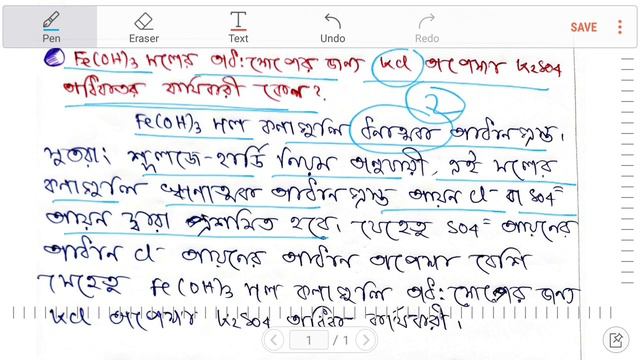 Pen
Eraser
Text
Undo
Redo
SAVE
Fe(OH)3 সলের অধঃক্ষেপের জন্য KCl অপেক্ষা K2SO4
অধিকতর কার্যকারী কেন?
2
Fe(OH)3 সল কণাগুলি ধনাত্মক আধানগ্রস্ত।
সুতরাং শুলজে-হার্ডি নিয়ম অনুযায়ী, এই সলের
কণাগুলি ঋণাত্মক আধানগ্রস্ত আয়ন Cl⁻ বা SO4⁼
আয়ন দ্বারা প্রশমিত হবে। যেহেতু SO4⁼ আয়নের
আধান Cl⁻ আয়নের আধান অপেক্ষা বেশি
সেহেতু Fe(OH)3 সল কণাগুলি অধঃক্ষেপের জন্য
KCl অপেক্ষা K2SO4 অধিক কার্যকারী।
1 / 1